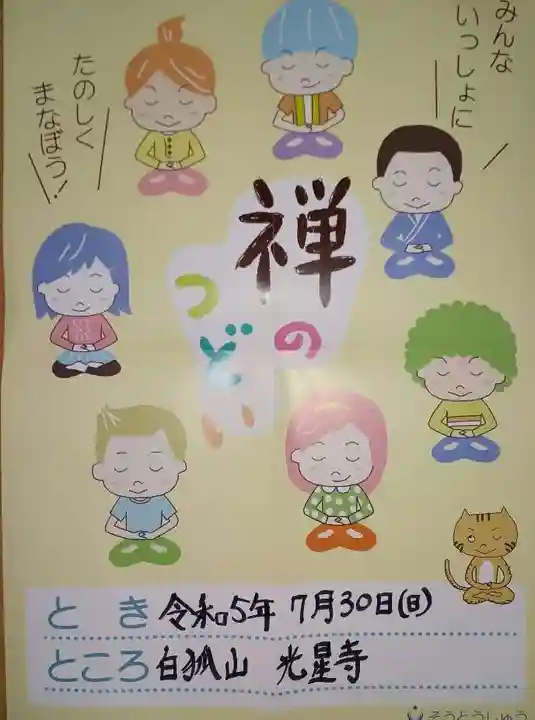 みんな
いっしょに
たのしく
まなぼう！
禅
の
つどい
とき 令和5年 7月30日(日)
ところ 白狐山 光星寺
そうとうしゅう